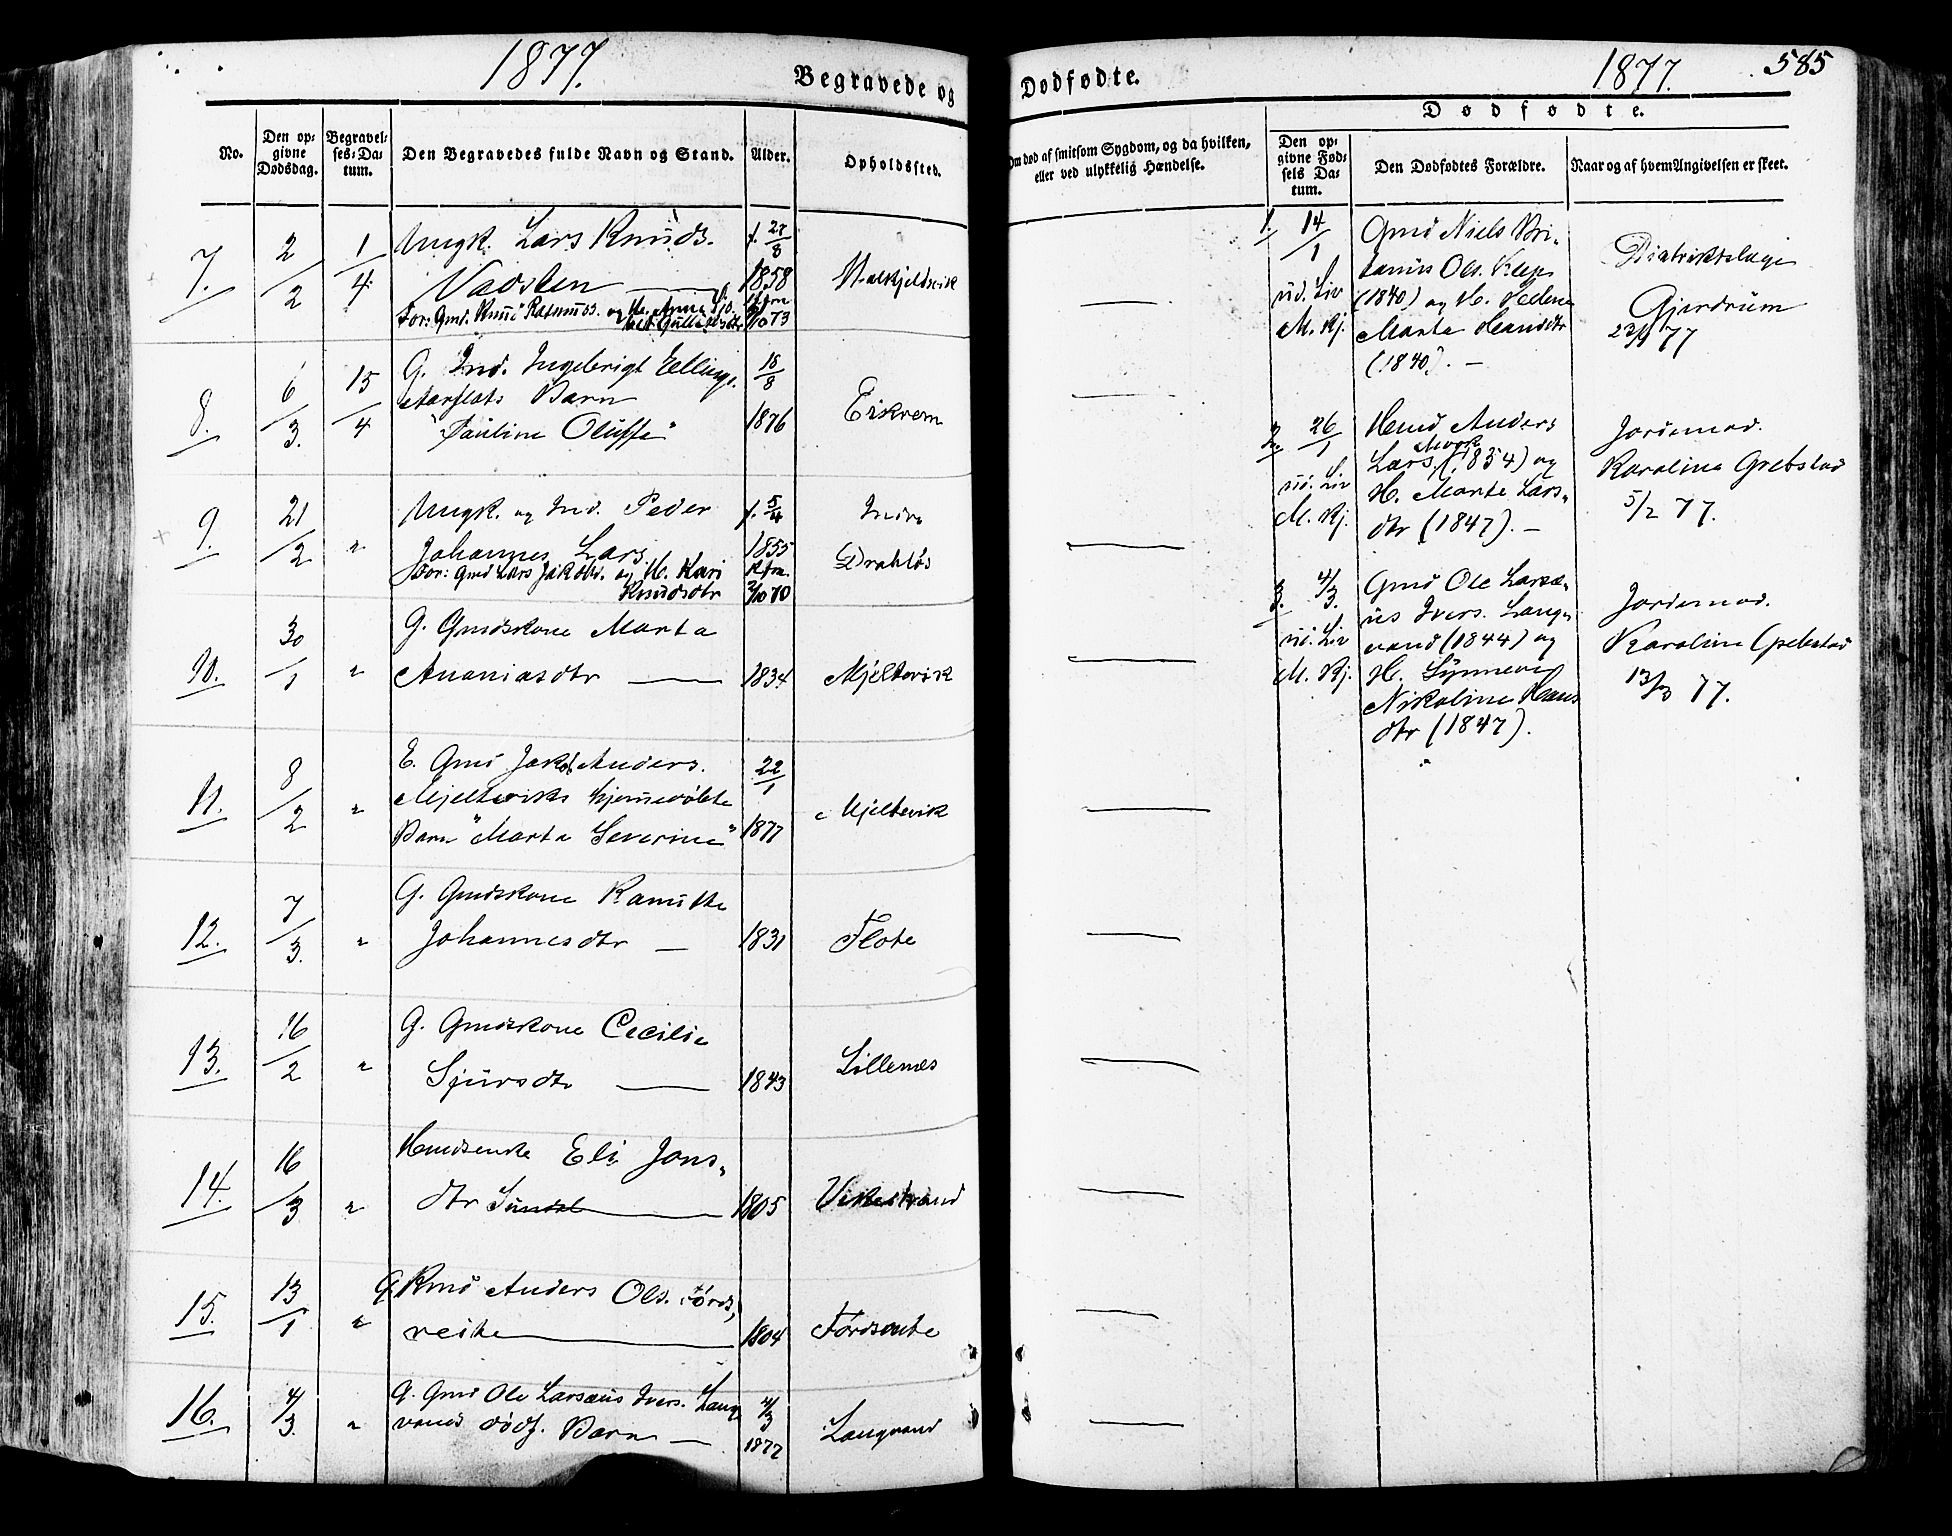 1877.
Begravede og
No.
Den op-
givne
Dødsdag.
Begravel-
ses-Da-
tum.
Den Begravedes fulde Navn og Stand.
Alder.
Opholdssted.
7.
2/2
1/4
Ungk. Lars Knuds.
27/8
1858
For: Gmd. Knud Rasmuss. og H. Anne
8.
6/3.
15/4
G. Ind. Ingebrigt Ellings.
Barn
"Pauline Oluffa"
18/8
1876
Eikrem
9.
21/2
"
Ungk. og Ind. Peder
Johannes Lars.
For: Gmd Lars Jakobs. og H. Kari
Knudsdtr
f. 5/4
1855
Kfm.
2/10 70
Indre
Drabløs
10.
30/1
"
G. Gmdskone Marta
Ananiasdtr
1834
Mjeltevik
11.
8/2
"
E. Gmd Jakob Anders.
Mjelteviks hjemmedøbte
Barn "Marta Severine"
22/1
1877
Mjeltevik
12.
7/3.
"
G. Gmdskone
Johannesdtr
1831
Flote
13.
16/2
"
G. Gmdskone Cecilie
Sjursdtr
1843
Lillenes
14.
16/3
"
Hmdsenke Eli Jons-
dtr
1805
Vikestrand
15.
13/1
"
Anders Ols.
1804
16.
4/3.
"
G. Gmd Ole Larsæus Ivers. Lang-
vand dødf. Barn
4/3
1877
Langvand
Dødfødte.
1877.
585
Om død af smitsom Sygdom, og da hvilken,
eller ved ulykkelig Hændelse.
Dødfødte.
Den op-
givne Fød-
sels Da-
tum.
Den Dødfødtes Forældre.
Naar og af hvem Angivelsen er skeet.
1.
14/1
ud. Liv
M. Kj.
Gmd Niels Bri-
tanus Ols. Klep
(1840) og H. Helene
Marta Hansdtr
(1840). —
Distriktslæge
Gjerdrum
23/1 77
2.
26/1
ud. Liv
M. Kj.
Hmd Anders
Lars. (1854) og
H. Marte Lars-
dtr (1847). —
Jordemod.
Karoline Grebstad
5/2 77.
3.
4/3.
ud. Liv
M. Kj.
Gmd Ole Larsæ-
us Ivers. Lang-
vand (1844) og
H. Synneve
Nikoline Hans
dtr (1847).
Jordemod.
Karoline Grebstad
13/3 77.